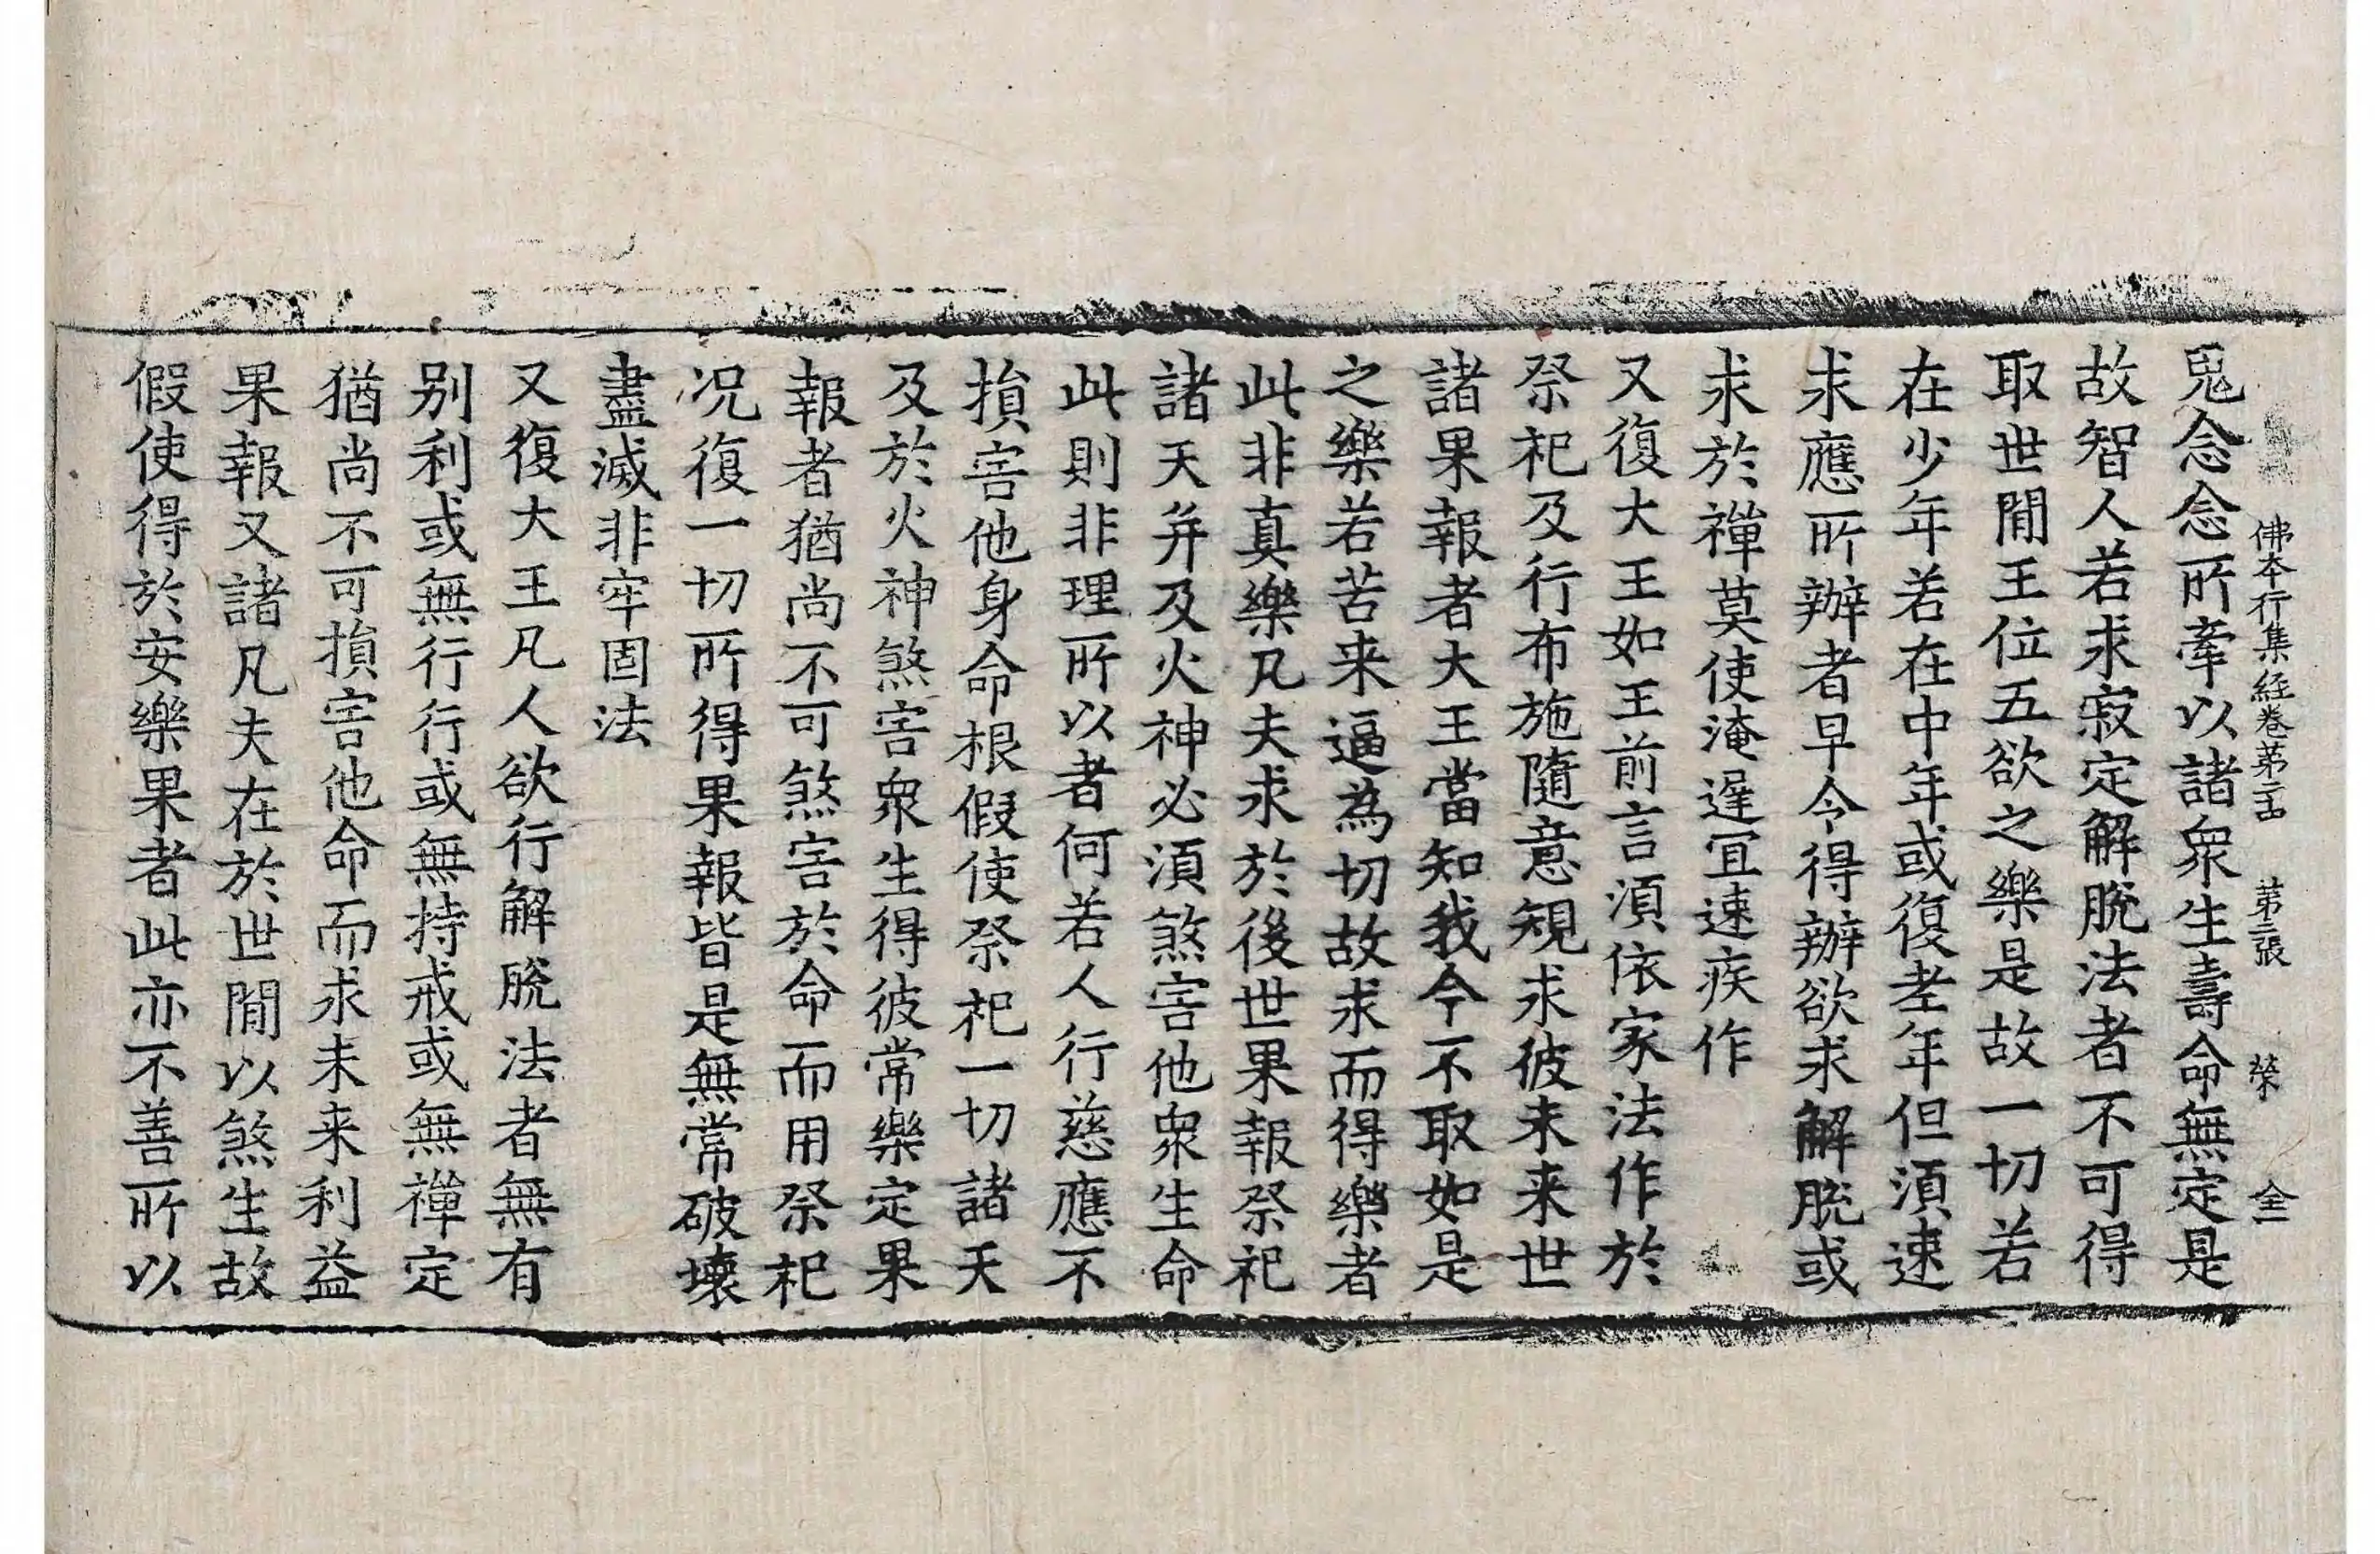 佛本行集經卷第二十四 第二張 榮 全一
鬼念念所牽以諸衆生壽命無定是
故智人若求寂定解脫法者不可得
取世間王位五欲之樂是故一切若
在少年若在中年或復老年但須速
求應所辦者早令得辦欲求解脫或
求於禪莫使淹遲宜速疾作
又復大王如王前言須依家法作於
祭祀及行布施隨意規求彼未来世
諸果報者大王當知我今不取如是
之樂若苦来逼為切故求而得樂者
此非真樂凡夫求於後世果報祭祀
諸天并及火神必須煞害他衆生命
此則非理所以者何若人行慈應不
損害他身命根假使祭祀一切諸天
及於火神煞害衆生得彼常樂定果
報者猶尚不可煞害於命而用祭祀
况復一切所得果報皆是無常破壞
盡滅非牢固法
又復大王凡人欲行解脫法者無有
别利或無行行或無持戒或無禪定
猶尚不可損害他命而求未来利益
果報又諸凡夫在於世間以煞生故
假使得於安樂果者此亦不善所以